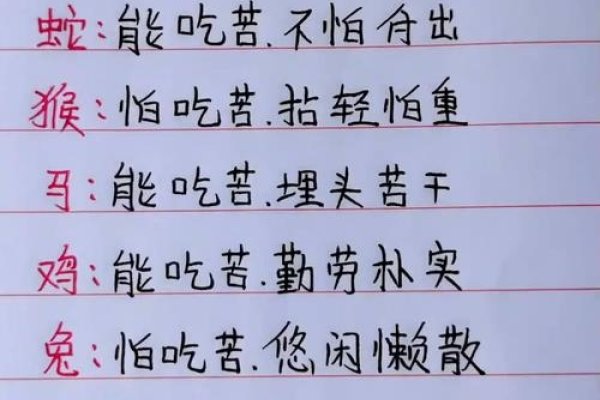 蛇:能吃苦.不怕付出
猴:怕吃苦.拈轻怕重
马:能吃苦.埋头苦干
鸡:能吃苦.勤劳朴实
兔:怕吃苦.悠闲懒散